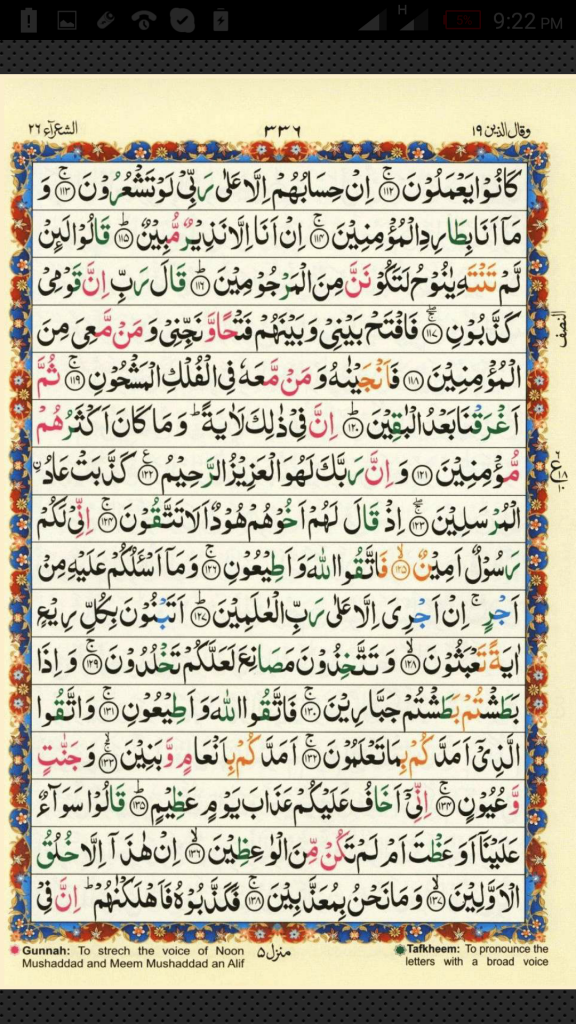 H 5% 9:22 PM
وقال الذين ١٩ ٣٣٦ الشعرآء ٢٦
كَانُوْا يَعْمَلُوْنَ ۚ﴿۱۱۲﴾ اِنْ حِسَابُهُمْ اِلَّا عَلٰى رَبِّىْ لَوْ تَشْعُرُوْنَ ۚ﴿۱۱۳﴾ وَ
مَاۤ اَنَا بِطَارِدِ الْمُؤْمِنِيْنَ ۚ﴿۱۱۴﴾ اِنْ اَنَا اِلَّا نَذِيْرٌ مُّبِيْنٌ ؕ﴿۱۱۵﴾ قَالُوْا لَئِنْ
لَّمْ تَنْتَهِ يٰنُوْحُ لَتَكُوْنَنَّ مِنَ الْمَرْجُوْمِيْنَ ؕ﴿۱۱۶﴾ قَالَ رَبِّ اِنَّ قَوْمِىْ
كَذَّبُوْنِ ۚۖ﴿۱۱۷﴾ فَافْتَحْ بَيْنِىْ وَبَيْنَهُمْ فَتْحًا وَّنَجِّنِىْ وَمَنْ مَّعِىَ مِنَ
النصف
الْمُؤْمِنِيْنَ ﴿۱۱۸﴾ فَاَنْجَيْنٰهُ وَمَنْ مَّعَهٗ فِى الْفُلْكِ الْمَشْحُوْنِ ۚ﴿۱۱۹﴾ ثُمَّ
اَغْرَقْنَا بَعْدُ الْبٰقِيْنَ ؕ﴿۱۲۰﴾ اِنَّ فِىْ ذٰلِكَ لَاٰيَةً ؕ وَمَا كَانَ اَكْثَرُهُمْ
مُّؤْمِنِيْنَ ﴿۱۲۱﴾ وَاِنَّ رَبَّكَ لَهُوَ الْعَزِيْزُ الرَّحِيْمُ ۠﴿۱۲۲﴾ كَذَّبَتْ عَادُ ۨ
الْمُرْسَلِيْنَ ۚۖ﴿۱۲۳﴾ اِذْ قَالَ لَهُمْ اَخُوْهُمْ هُوْدٌ اَلَا تَتَّقُوْنَ ۚ﴿۱۲۴﴾ اِنِّىْ لَكُمْ
رَسُوْلٌ اَمِيْنٌ ۙ﴿۱۲۵﴾ فَاتَّقُوا اللّٰهَ وَاَطِيْعُوْنِ ۚ﴿۱۲۶﴾ وَمَاۤ اَسْئَلُكُمْ عَلَيْهِ مِنْ
اَجْرٍ ۚ اِنْ اَجْرِىَ اِلَّا عَلٰى رَبِّ الْعٰلَمِيْنَ ؕ﴿۱۲۷﴾ اَتَبْنُوْنَ بِكُلِّ رِيْعٍ
اٰيَةً تَعْبَثُوْنَ ۙ﴿۱۲۸﴾ وَتَتَّخِذُوْنَ مَصَانِعَ لَعَلَّكُمْ تَخْلُدُوْنَ ۚ﴿۱۲۹﴾ وَاِذَا
بَطَشْتُمْ بَطَشْتُمْ جَبَّارِيْنَ ۚ﴿۱۳۰﴾ فَاتَّقُوا اللّٰهَ وَاَطِيْعُوْنِ ۚ﴿۱۳۱﴾ وَاتَّقُوا
الَّذِىْۤ اَمَدَّكُمْ بِمَا تَعْلَمُوْنَ ۚ﴿۱۳۲﴾ اَمَدَّكُمْ بِاَنْعَامٍ وَّبَنِيْنَ ۚۙ﴿۱۳۳﴾ وَجَنّٰتٍ
وَّعُيُوْنٍ ۚ﴿۱۳۴﴾ اِنِّىْۤ اَخَافُ عَلَيْكُمْ عَذَابَ يَوْمٍ عَظِيْمٍ ؕ﴿۱۳۵﴾ قَالُوْا سَوَآءٌ
عَلَيْنَاۤ اَوَعَظْتَ اَمْ لَمْ تَكُنْ مِّنَ الْوٰعِظِيْنَ ۙ﴿۱۳۶﴾ اِنْ هٰذَاۤ اِلَّا خُلُقُ
الْاَوَّلِيْنَ ۙ﴿۱۳۷﴾ وَمَا نَحْنُ بِمُعَذَّبِيْنَ ۚ﴿۱۳۸﴾ فَكَذَّبُوْهُ فَاَهْلَكْنٰهُمْ ؕ اِنَّ فِىْ
Gunnah: To strech the voice of Noon
Mushaddad and Meem Mushaddad an Alif
منزل ٥
Tafkheem: To pronounce the
letters with a broad voice